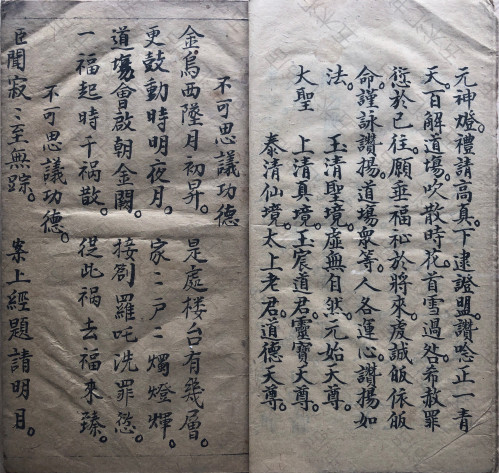 元神燈禮請高真。下逮證盟讚唸正一青
天百解道場。吹散時花首雪過咎。希赦罪
愆於已往。願垂福祉於將來。虔誠皈依皈
命。謹詠讚揚。道場眾等。人各運心讚揚如
法。 玉清聖境。虛無自然。元始天尊。
大聖 上清真境。玉宸道君。靈寶天尊。
泰清仙境。太上老君。道德天尊。
不可思議功德
金烏西墜月初昇。是處楼台有幾層。
更鼓動時明夜月。家〻户〻燭燈輝。
道場會啟朝金闕。接羅吒洗罪愆。
一福起時千祸散。從此祸去福來臻。
不可思議功德。
臣聞寂〻至無踪。案上經題請明目。